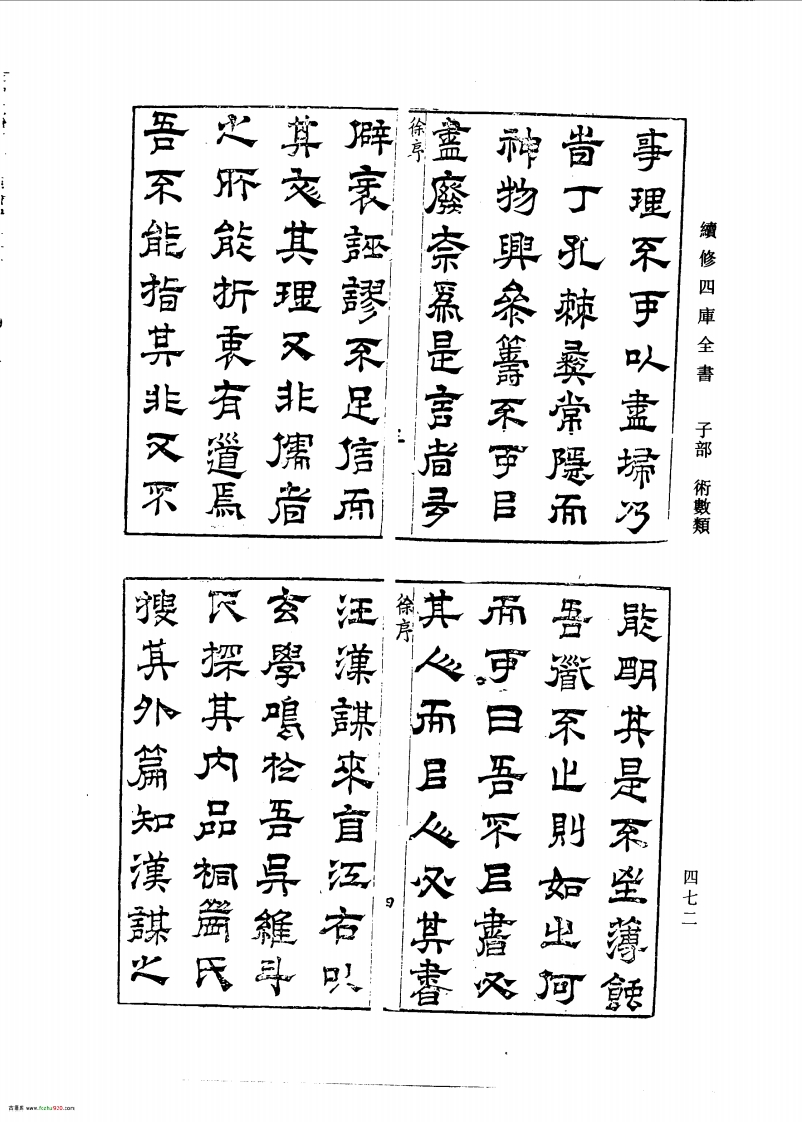 續修四庫全書 子部 術數類
事理不可以盡埽乃
昔丁孔棘彝常隱而
神物興叅籌不可㠯
盡廢柰爲是言者尋
徐序
三
僻袤誣謬不足信而
其文其理又非儒者
之所能折衷有道焉
吾不能指其非又不
能明其是不坐薄蝕
吾衜不止則如之何
而可曰吾不㠯書廢
其人而㠯人廢其書
徐序
四
汪漢謀來自江右以
玄學鳴於吾吳維斗
氏探其內品桐菴氏
搜其外篇知漢謀之
四七二
古籍库 www.fozhu920.com